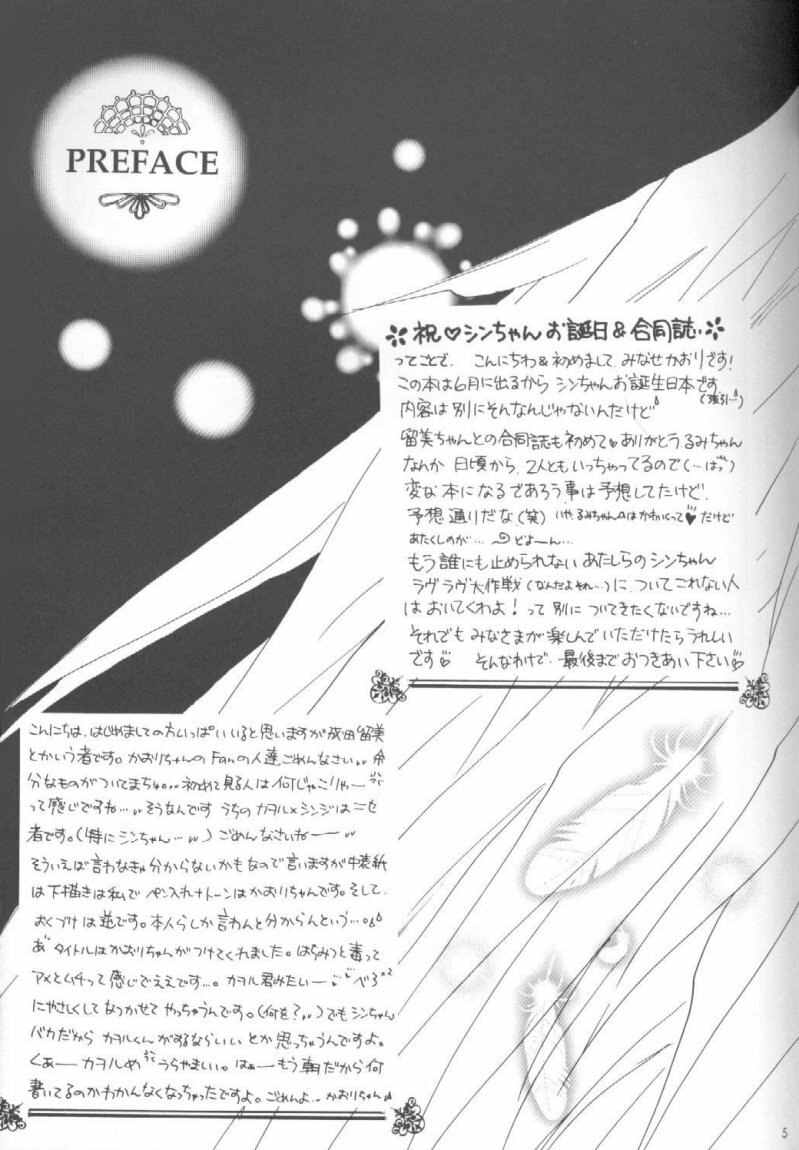 PREFACE
祝♡シンちゃんお誕日&合同誌
ってことで、こんにちわ&初めまして、みなせかおりです!
この本は6月に出るからシンちゃんお誕生日本です
(強引…)
内容は別にそんなんじゃないんだけど
留美ちゃんとの合同誌も初めて♥ありがとうるみちゃん
なんか日頃から、2人ともいっちゃってるので(…はっ)
変な本になるであろう事は予想してたけど、
予想通りだな(笑) いや、るみちゃんのはかわいくって♥だけど
あたくしのが… どよーん…
もう誰にも止められないあたしらのシンちゃん
ラヴラヴ大作戦(なんだよそれ…)に、ついてこれない人
はおいてくわよ!って別についてきたくないですね…
それでもみなさまが楽しんでいただけたらうれしい
です♡ そんなわけで、最後までおつきあい下さい♡
こんにちは、はじめましての方いっぱいいると思いますが成田留美
とかいう者です。かおりちゃんのFanの人達ごめんなさい。余
分なものがついてまちゅ。初めて見る人は何じゃこりゃー
って感じですね…。そうなんですうちのカヲル×シンジはニセ
者です。(特にシンちゃん…)ごめんなさいねー
そういえば言わなきゃ分からないかもなので言いますが中表紙
は下描きは私でペン入れ+トーンはかおりちゃんです。そして
おくづけは並です。本人らしか言わんと分からんという…。
あ タイトルはかおりちゃんがつけてくれました。はちみつと毒って
アメとムチって感じでええです…。カヲル君みたいー
にやさしくしてなつかせてやっちゃうんです。(何を?)でもシンちゃん
バカだからカヲルくんがするならいいとか思っちゃうんですよ。
くぁーカヲルめうらやましい。はぁーもう朝だから何
書いてるのかわかんなくなっちゃったですよ。ごめんよ、かおりちゃん
5